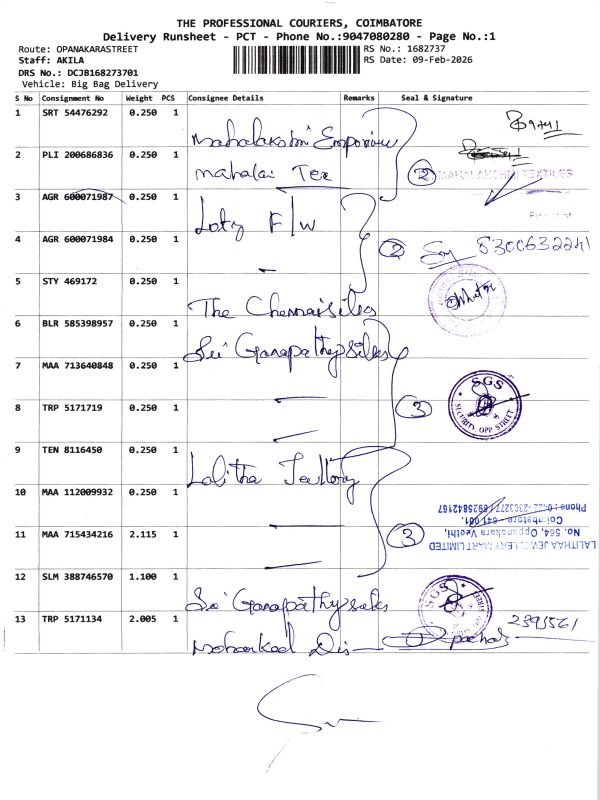 THE PROFESSIONAL COURIERS, COIMBATORE
Delivery Runsheet - PCT - Phone No.:9047080280 - Page No.:1
Route: OPANAKARASTREET RS No.: 1682737
Staff: AKILA RS Date: 09-Feb-2026
DRS No.: DCJB168273701
Vehicle: Big Bag Delivery
S No Consignment No Weight PCS Consignee Details Remarks Seal & Signature
1 SRT 54476292 0.250 1 Mahalakshmi Emporium
2 PLI 200686836 0.250 1 Mahalai Tex 2 MAHALAKSHMI TEXTILES
3 AGR 600071987 0.250 1 F/w
4 AGR 600071984 0.250 1 — 2 8300632241
5 STY 469172 0.250 1 The Chennai silks
6 BLR 585398957 0.250 1 Sri Ganapathy silks
7 MAA 713640848 0.250 1 — SGS
8 TRP 5171719 0.250 1 — 3 SECURITY OPP STREET
9 TEN 8116450 0.250 1 Lalitha
10 MAA 112009932 0.250 1 —
11 MAA 715434216 2.115 1 — 3
LALITHAA JEWELLERY MART LIMITED
No. 564, Oppanakara Veethi,
Coimbatore - 641 001.
12 SLM 388746570 1.100 1 Sri Ganapathy silks SGS
13 TRP 5171134 2.005 1